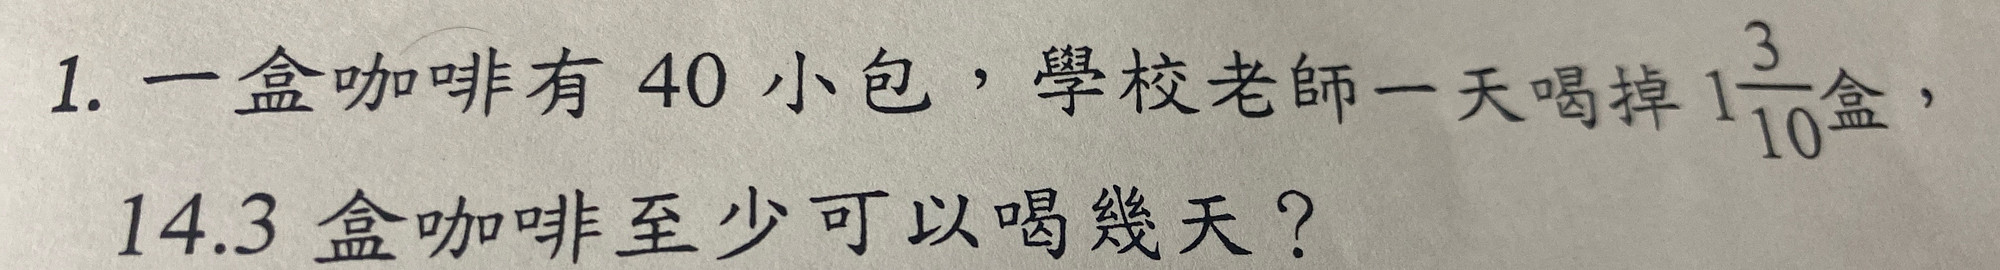 1. 一盒咖啡有 40 小包，學校老師一天喝掉 1 3/10 盒，
14.3 盒咖啡至少可以喝幾天？